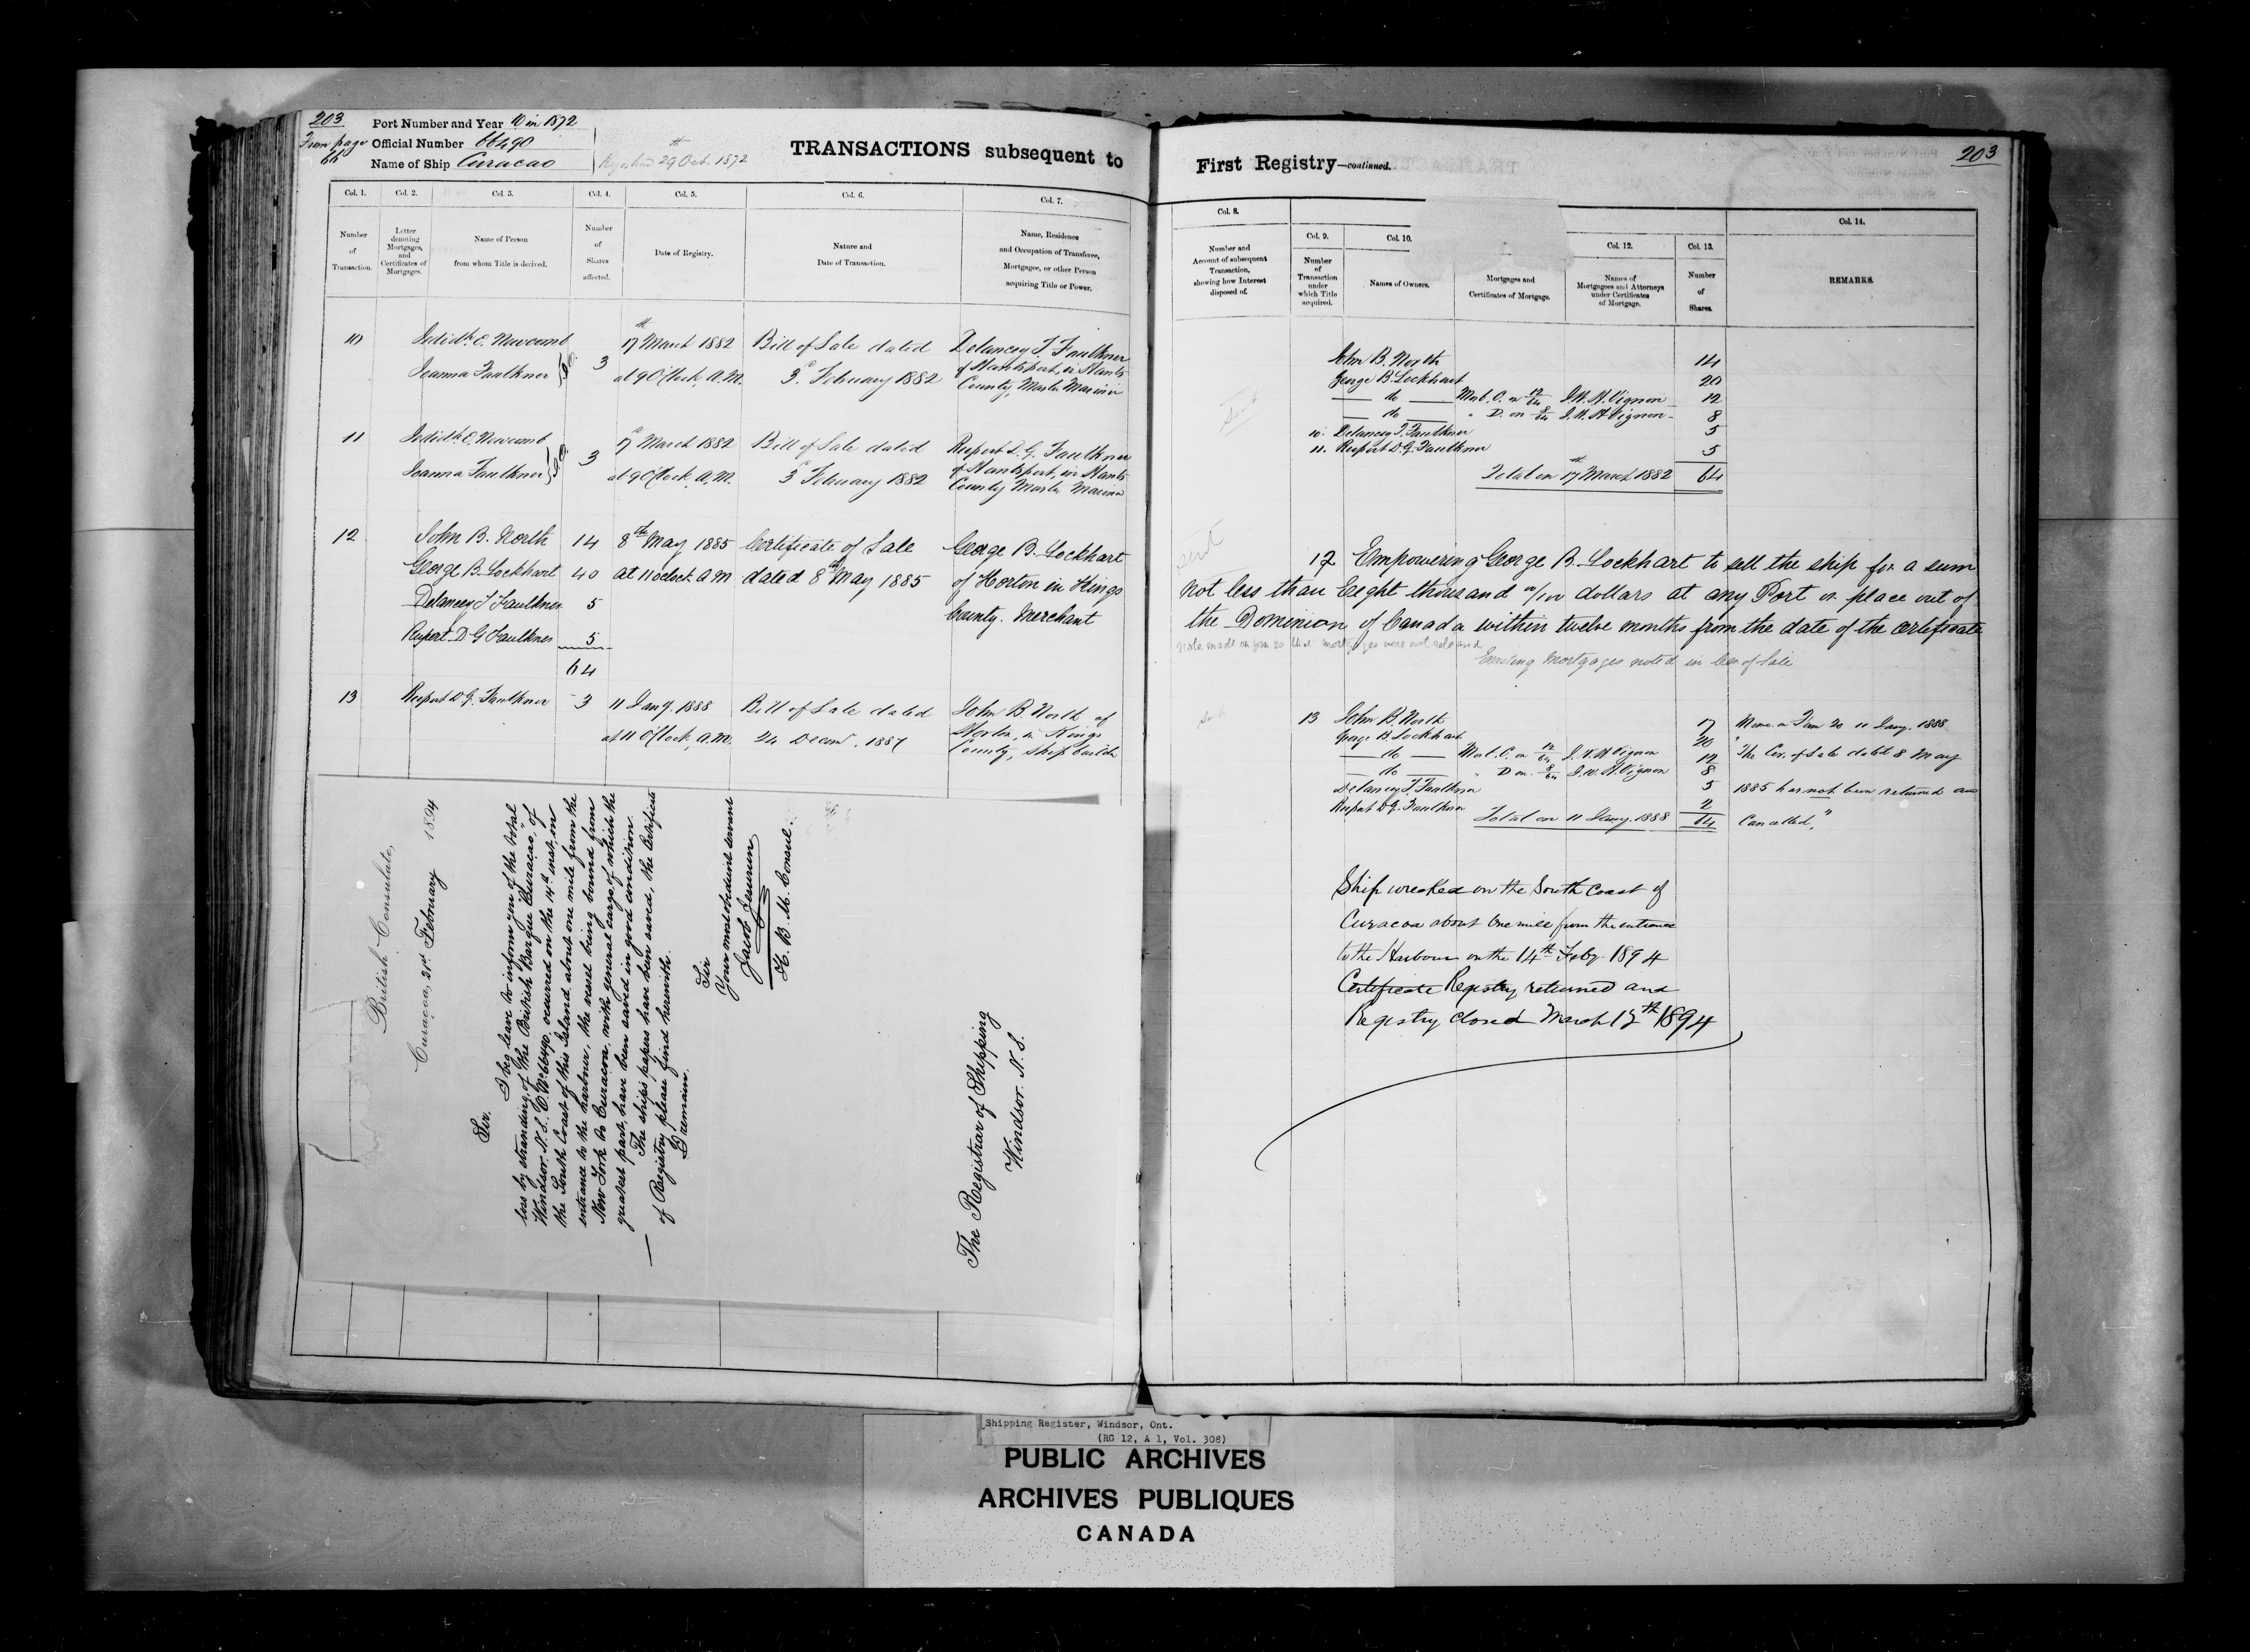 203
From page
66
Port Number and Year 10 in 1872
Official Number 66490
Name of Ship Curacao
Registered 29th Oct. 1872
TRANSACTIONS subsequent to
Col. 1.
Col. 2.
Col. 3.
Col. 4.
Col. 5.
Col. 6.
Col. 7.
Number
of
Transaction.
Letter
denoting
Mortgages,
and
Certificates of
Mortgages.
Name of Person
from whom Title is derived.
Number
of
Shares
affected.
Date of Registry.
Nature and
Date of Transaction.
Name, Residence
and Occupation of Transferee,
Mortgagee, or other Person
acquiring Title or Power.
10
Newcomb
Joanna Faulkner
3
17th March 1882
at 9 O'Clock, A.M.
Bill of Sale dated
3d February 1882
Delancey T. Faulkner
of Hantsport, in Hants
County, Master Mariner
11
Newcomb
Joanna Faulkner
3
17 March 1882
at 9 O'Clock, A.M.
Bill of Sale dated
3d February 1882
Rupert D. G. Faulkner
of Hantsport, in Hants
County Master Mariner
12
John B. North 14
George B. Lockhart 40
Delancey T Faulkner 5
Rupert D G Faulkner 5
64
8th May 1885
at 11 oclock A.M
Certificate of Sale
dated 8th May 1885
George B. Lockhart
of Horton in Kings
County. Merchant
13
Rupert D. G. Faulkner
3
11 Jany. 1888
at 11 O'Clock, A.M.
Bill of Sale dated
24 Decemr. 1887
John B. North of
Horton, in Kings
County, Ship builder
British Consulate,
Curaçoa, 21st February 1894
Sir,
I beg leave to inform you of the total
loss by stranding, of the British Barque "Curacao," of
Windsor. N.S. O. No 66490, occurred on the 14th inst. on
the South Coast of this Island about one mile from the
entrance to the harbour, the vessel being bound from
New York to Curacoa, with general cargo of which the
greatest part, have been saved in good condition.
The ships papers have been saved, the Certificate
of Registry please find herewith.
I remain.
Sir
Your most obedient servant
Jacob Jeuruun
H. B. M. Consul.
The Registrar of Shipping
Windsor. N.S.
First Registry—continued.
203
Col. 8.
Col. 9.
Col. 10.
Col. 12.
Col. 13.
Col. 14.
Number and
Account of subsequent
Transaction,
showing how Interest
disposed of.
Number
of
Transaction
under
which Title
acquired.
Names of Owners.
Mortgages and
Certificates of Mortgage.
Names of
Mortgagees and Attorneys
under Certificates
of Mortgage.
Number
of
Shares.
REMARKS.
John B. North 14
George B. Lockhart 20
— do — Mort. C. on 12/64 J. W. H. Vignon 12
— do — " D. on 8/64 J. W. H. Vignon 8
10. Delancey T. Faulkner 5
11. Rupert D. G. Faulkner 5
Total on 17th March 1882 64
sent
12 Empowering George B. Lockhart to sell the ship for a sum
not less than Eeght thousand 00/100 dollars at any Port or place out of
the Dominion of Canada within twelve months from the date of the certificate
Note made on form 20 that mortgages were not released
Existing Mortgages noted in Cer of Sale
13 John B. North 17
George B. Lockhart 20
— do — Mort. C. on 12/64 J. W. H. Vignon 12
— do — " D on. 8/64 J. W. H. Vignon 8
Delancey T. Faulkner 5
Rupert D. G. Faulkner 2
Total on 11 Jany. 1888 64
Memo. on Form 20 11 Jany. 1888
"The Cer. of Sale dated 8 May
1885 has not been returned and
Cancelled."
Ship wrecked on the South Coast of
Curacoa about One mile from the entrance
to the Harbour on the 14th Feby. 1894
Certificate Registry returned and
Registry closed March 12th 1894
Shipping Register, Windsor, Ont.
(RG 12, A 1, Vol. 308)
PUBLIC ARCHIVES
ARCHIVES PUBLIQUES
CANADA